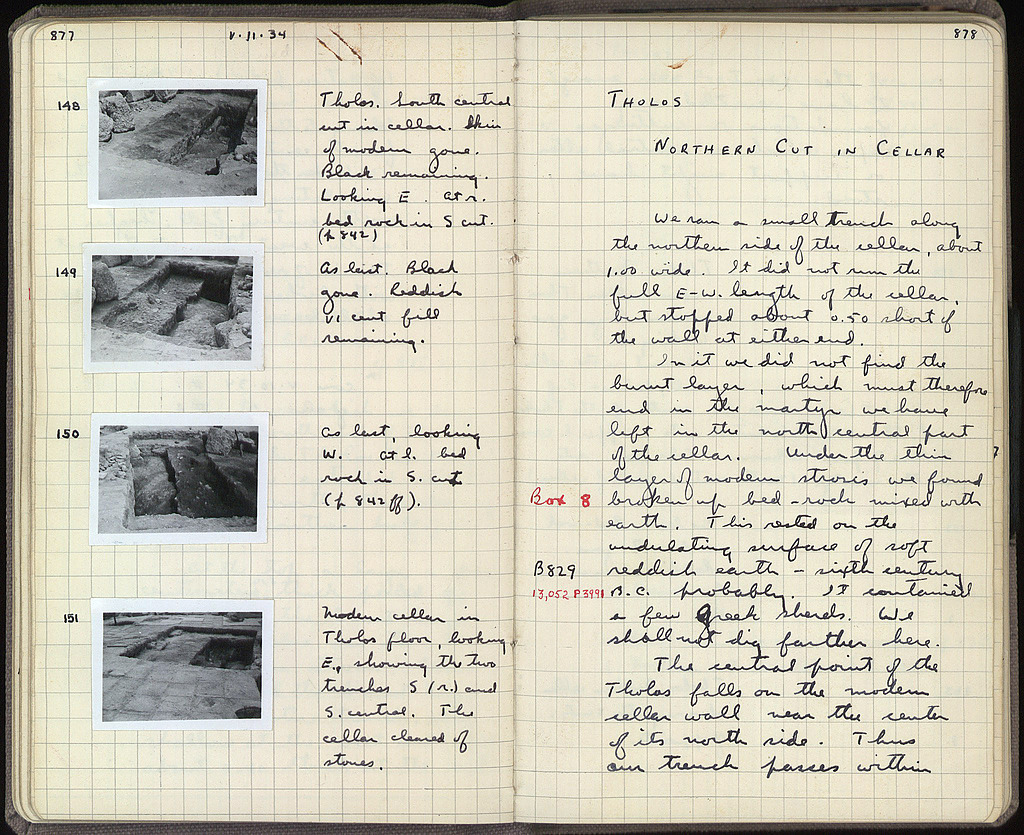 877
V.11.34
148
Tholos. South central
cut in cellar. Skin
of modern gone.
Black remaining.
Looking E. At r.
bed rock in S cut.
(p 842)
149
As last. Black
gone. Reddish
VI cent fill
remaining.
150
As last, looking
W. At l. bed
rock in S. cut
(p 842 ff).
151
Modern cellar in
Tholos floor, looking
E., showing the two
trenches S (r.) and
S. central. The
cellar cleared of
stones.
878
THOLOS
NORTHERN CUT IN CELLAR
We ran a small trench along
the northern side of the cellar, about
1.00 wide. It did not run the
full E-W. length of the cellar,
but stopped about 0.50 short of
the wall at either end.
In it we did not find the
burnt layer, which must therefore
end in the martyr we have
left in the north central part
of the cellar. Under the thin
layer of modern strosis we found
Box 8
broken up bed-rock mixed with
earth. This rested on the
undulating surface of soft
B829
reddish earth - sixth century
13,052 P3991
B.C. probably. It contained
a few Greek sherds. We
shall not dig farther here.
The central point of the
Tholos falls on the modern
cellar wall near the center
of its north side. Thus
our trench passes within